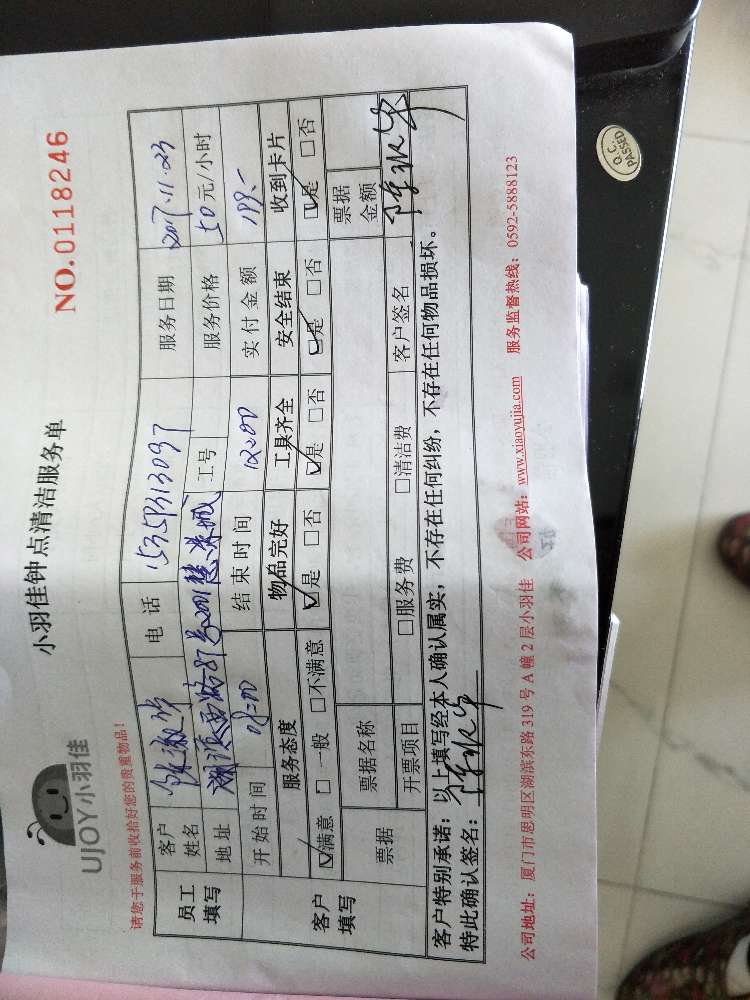 小羽佳钟点清洁服务单
UJOY小羽佳
NO.0118246
请您于服务前收拾好您的贵重物品!
员工填写 客户姓名 电话 服务日期
地址 工号 服务价格 50元/小时
开始时间 结束时间 12:00 实付金额 199.-
客户填写 服务态度 物品完好 工具齐全 安全结束 收到卡片
☑满意 □一般 □不满意 ☑是 □否 ☑是 □否 ☑是 □否 ☑是 □否
票据 票据名称 票据金额
开票项目 □服务费 □清洁费 客户签名
客户特别承诺:以上填写经本人确认属实,不存在任何纠纷,不存在任何物品损坏。
特此确认签名:
公司地址:厦门市思明区湖滨东路319号A幢2层小羽佳 公司网站:www.xiaoyujia.com 服务监督热线:0592-5888123
Q.C.
PASSED